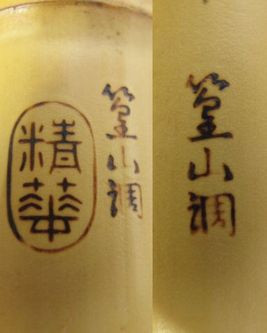 精華
篁山調
篁山調